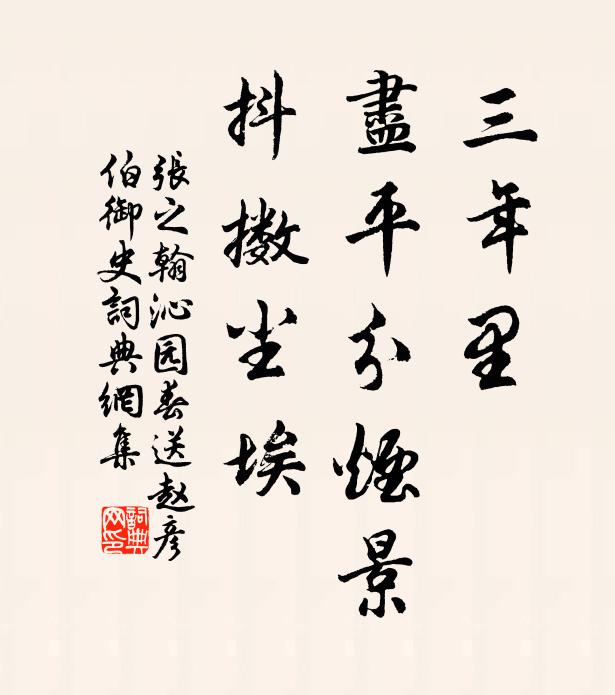 三年里
盡平分煙景
抖擻尘埃
張之翰沁园春送赵彦
伯御史詞典網集
詞典
网印